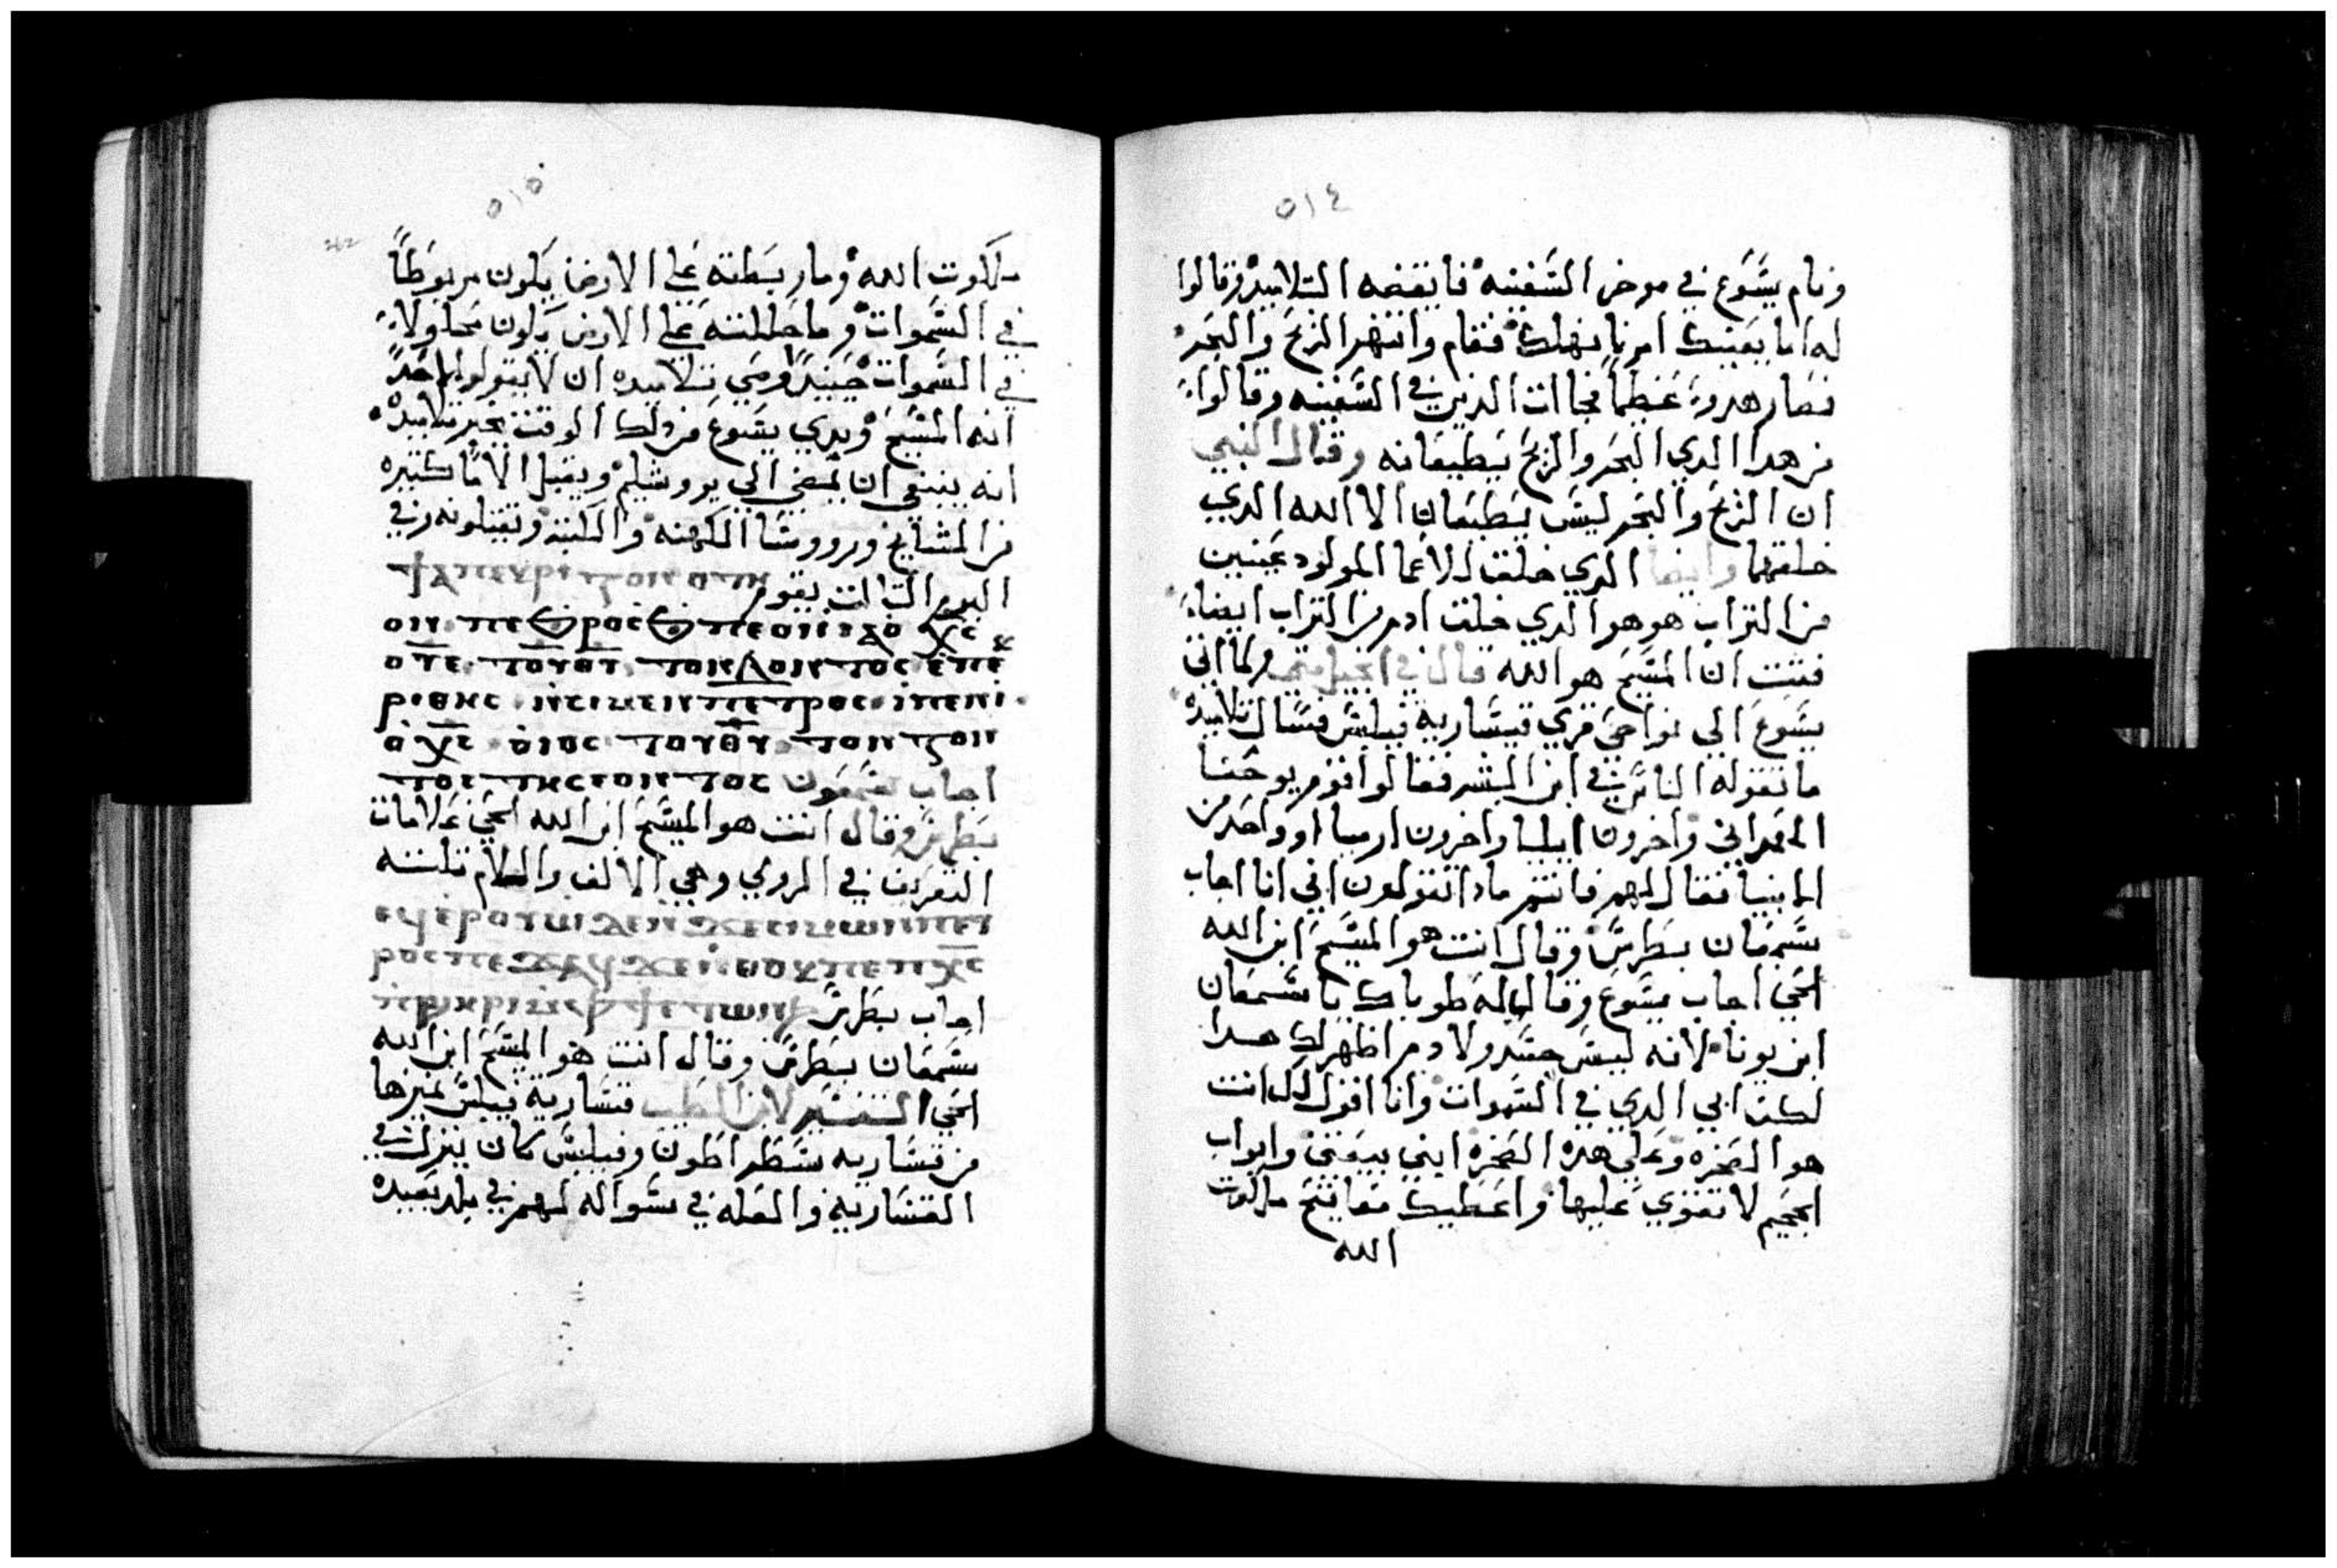 ٥١٤
ونام يسوع في موخر السفينه فايقضه التلاميد وقالوا
له اما يعنيك امرنا نهلك فقام وانتهر الريح والبحر
فصار هدوء عظيما فجاات الدين في السفينه وقالوا
من هدا الدي البحر والريح يطيعانه وقال النبي
ان الريح والبحر ليس يطيعان الا الله الدي
خلقهما وايضا الدي خلق للاعما المولود عينين
من التراب هو هو الدي خلق ادم من التراب ايضا
فثبت ان المسيح هو الله قال في انجيل متى ولما اتى
يسوع الي نواحي قري قيساريه فيلبس فسال تلاميده
ما تقوله الناس في ابن البشر فقالوا قوم يوحنا
المعمداني واخرون ايليا واخرون ارميا او واحد من
الانبيا فقال لهم فانتم مادا تقولون اني انا اجاب
سمعان بطرس وقال انت هو المسيح ابن الله
الحي اجاب يسوع وقال له طوباك يا سمعان
ابن يونا لانه ليس جسد ولا دم اظهر لك هدا
لكن ابي الدي في السموات وانا اقول لك انت
هو الصخره وعلي هده الصخره ابني بيعتي وابواب
الجحيم لا تقوي عليها واعطيك مفاتيح ملكوت
الله
٥١٥
ملكوت الله وما ربطته علي الارض يكون مربوطا
في السموات وما حللته علي الارض يكون محلولا
في السموات حينيد وصي تلاميده ان لا يقولوا لاحد
انه المسيح وبدي يسوع من دلك الوقت يخبر تلاميده
انه ينبغي ان يمضي الي يروشليم ويقبل الاما كتيره
من المشايخ ورووسا الكهنه والكتبه ويقتلونه وفي
اليوم التالت يقوم
ρⲓⲑⲏⲥ ⲛⲥⲓⲙⲉⲛ ⲡⲉⲧⲣⲟⲥ ⲓⲡⲉⲛⲓ
ⲟ ⲭ̅ⲥ ⲟⲓⲟⲥ ⲧⲟⲩⲑⲩ ⲧⲟⲛ ⲍⲟⲛ
ⲧⲟⲥ ⲧⲏⲥⲉⲟⲛⲧⲟⲥ اجاب سمعون
بطرس وقال انت هو المسيح ابن الله الحي علامات
التعريف في الرومي وهي الالف واللام تلتته
ⲉϥⲉⲣⲟⲩⲱ ϫⲉⲛ ϫⲉ ⲥⲓⲙⲱⲛ ⲡⲉⲧ
ⲣⲟⲥ ⲡⲉϫⲁϥ ϫⲉ ⲛⲑⲟⲕ ⲡⲉ ⲡⲭ̅ⲥ
اجاب بطرس
سمعان بطرس وقال انت هو المسيح ابن الله
الحي التفسير لابن الطيب قيساريه فيلبس لميزها
من قيساريه سطراطون وفيلبس كان ينزل في
القيساريه والعله في سواله لهم في بلد بعيده